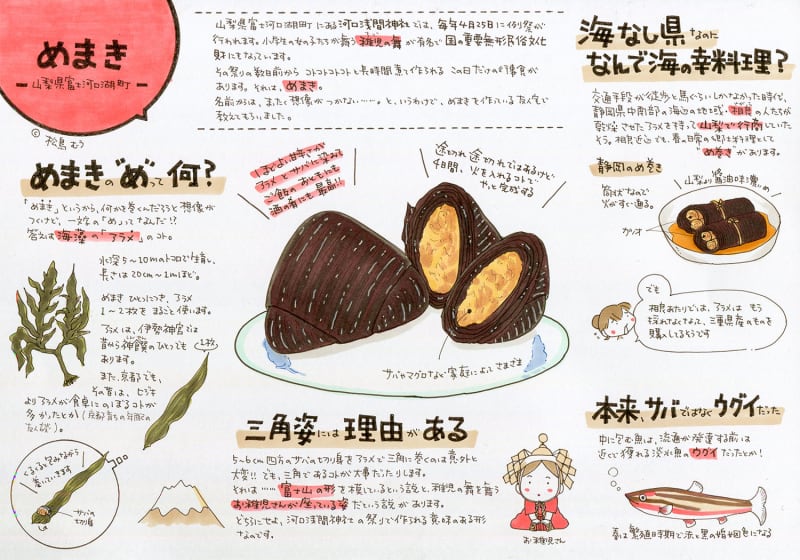 めまき
山梨県富士河口湖町
© 松鳥むう
山梨県富士河口湖町にある河口浅間神社では、毎年4月25日に例祭が
行われます。小学生の女の子たちが舞う稚児の舞が有名で国の重要無形民俗文化
財にもなっています。
その祭りの数日前からコトコトコトと長時間煮て作られるこの日だけの
があります。それは、めまき。
名前からは、まだ想像がつかない……。というわけで、めまきを作っている友人宅で
教えてもらいました。
めまきの"め"って何?
「めまき」というから、何かを巻くんだろうと想像が
つくけど、一文字の「め」ってなんだ!?
答えは海藻の「アラメ」のコト。
水深5〜10mのトコロで生育し、
長さは20cm〜1mほど。
めまきひとつにつき、アラメ
1〜2枚をまるごと使います。
アラメは、伊勢神宮では
昔から神饌のひとつでも
あります。
また、京都でも、
その昔は、ヒジキ
よりアラメが食卓
にのぼるコトが
多かったとか(京都育ちの年配の
友人談)。
1枚
くるくると包みながら
巻いていきます
コロコロ
サバの
切り身
ほどよい甘辛さが
アラメとサバに染みて
ご飯のおともにも
酒の肴にも最高!!
途切れ途切れではあるけど
4日間、火を入れるコトで
やっと完成する
サバやマグロなど家庭によしさまざま
三角姿には理由がある
5〜6cm四方のサバの切り身をアラメで三角に巻くのは意外と
大変!!でも、三角であるコトが大事だったりします。
それは……富士山の形を模しているという説と、稚児の舞を舞う
お稚児さんが座っている姿だという説があります。
どちらにせよ、河口浅間神社の祭りで作られる意味のある形
なのです。
お稚児さん
海なし県なのに
なんで海の幸料理?
交通手段が徒歩と馬ぐらいしかなかった時代、
静岡県中南部の海辺の地域・相良の人たちが
乾燥させたアラメを持って山梨まで行商していた
そう。相良近辺でも、春の日常の郷土料理として
"め巻き"があります。
静岡のめ巻き
筒状なので
火がすぐ通る。
山梨より醤油味濃いめ
カツオ
でも
相良あたりでは、アラメはもう
採れなくなって、三重県産のものを
購入してるそうです
本来、サバではなくウグイだった
中に包む魚は、流通が発達する前は
近くで獲れる淡水魚のウグイだったとか!
春は繁殖時期で赤と黒の婚姻色になる